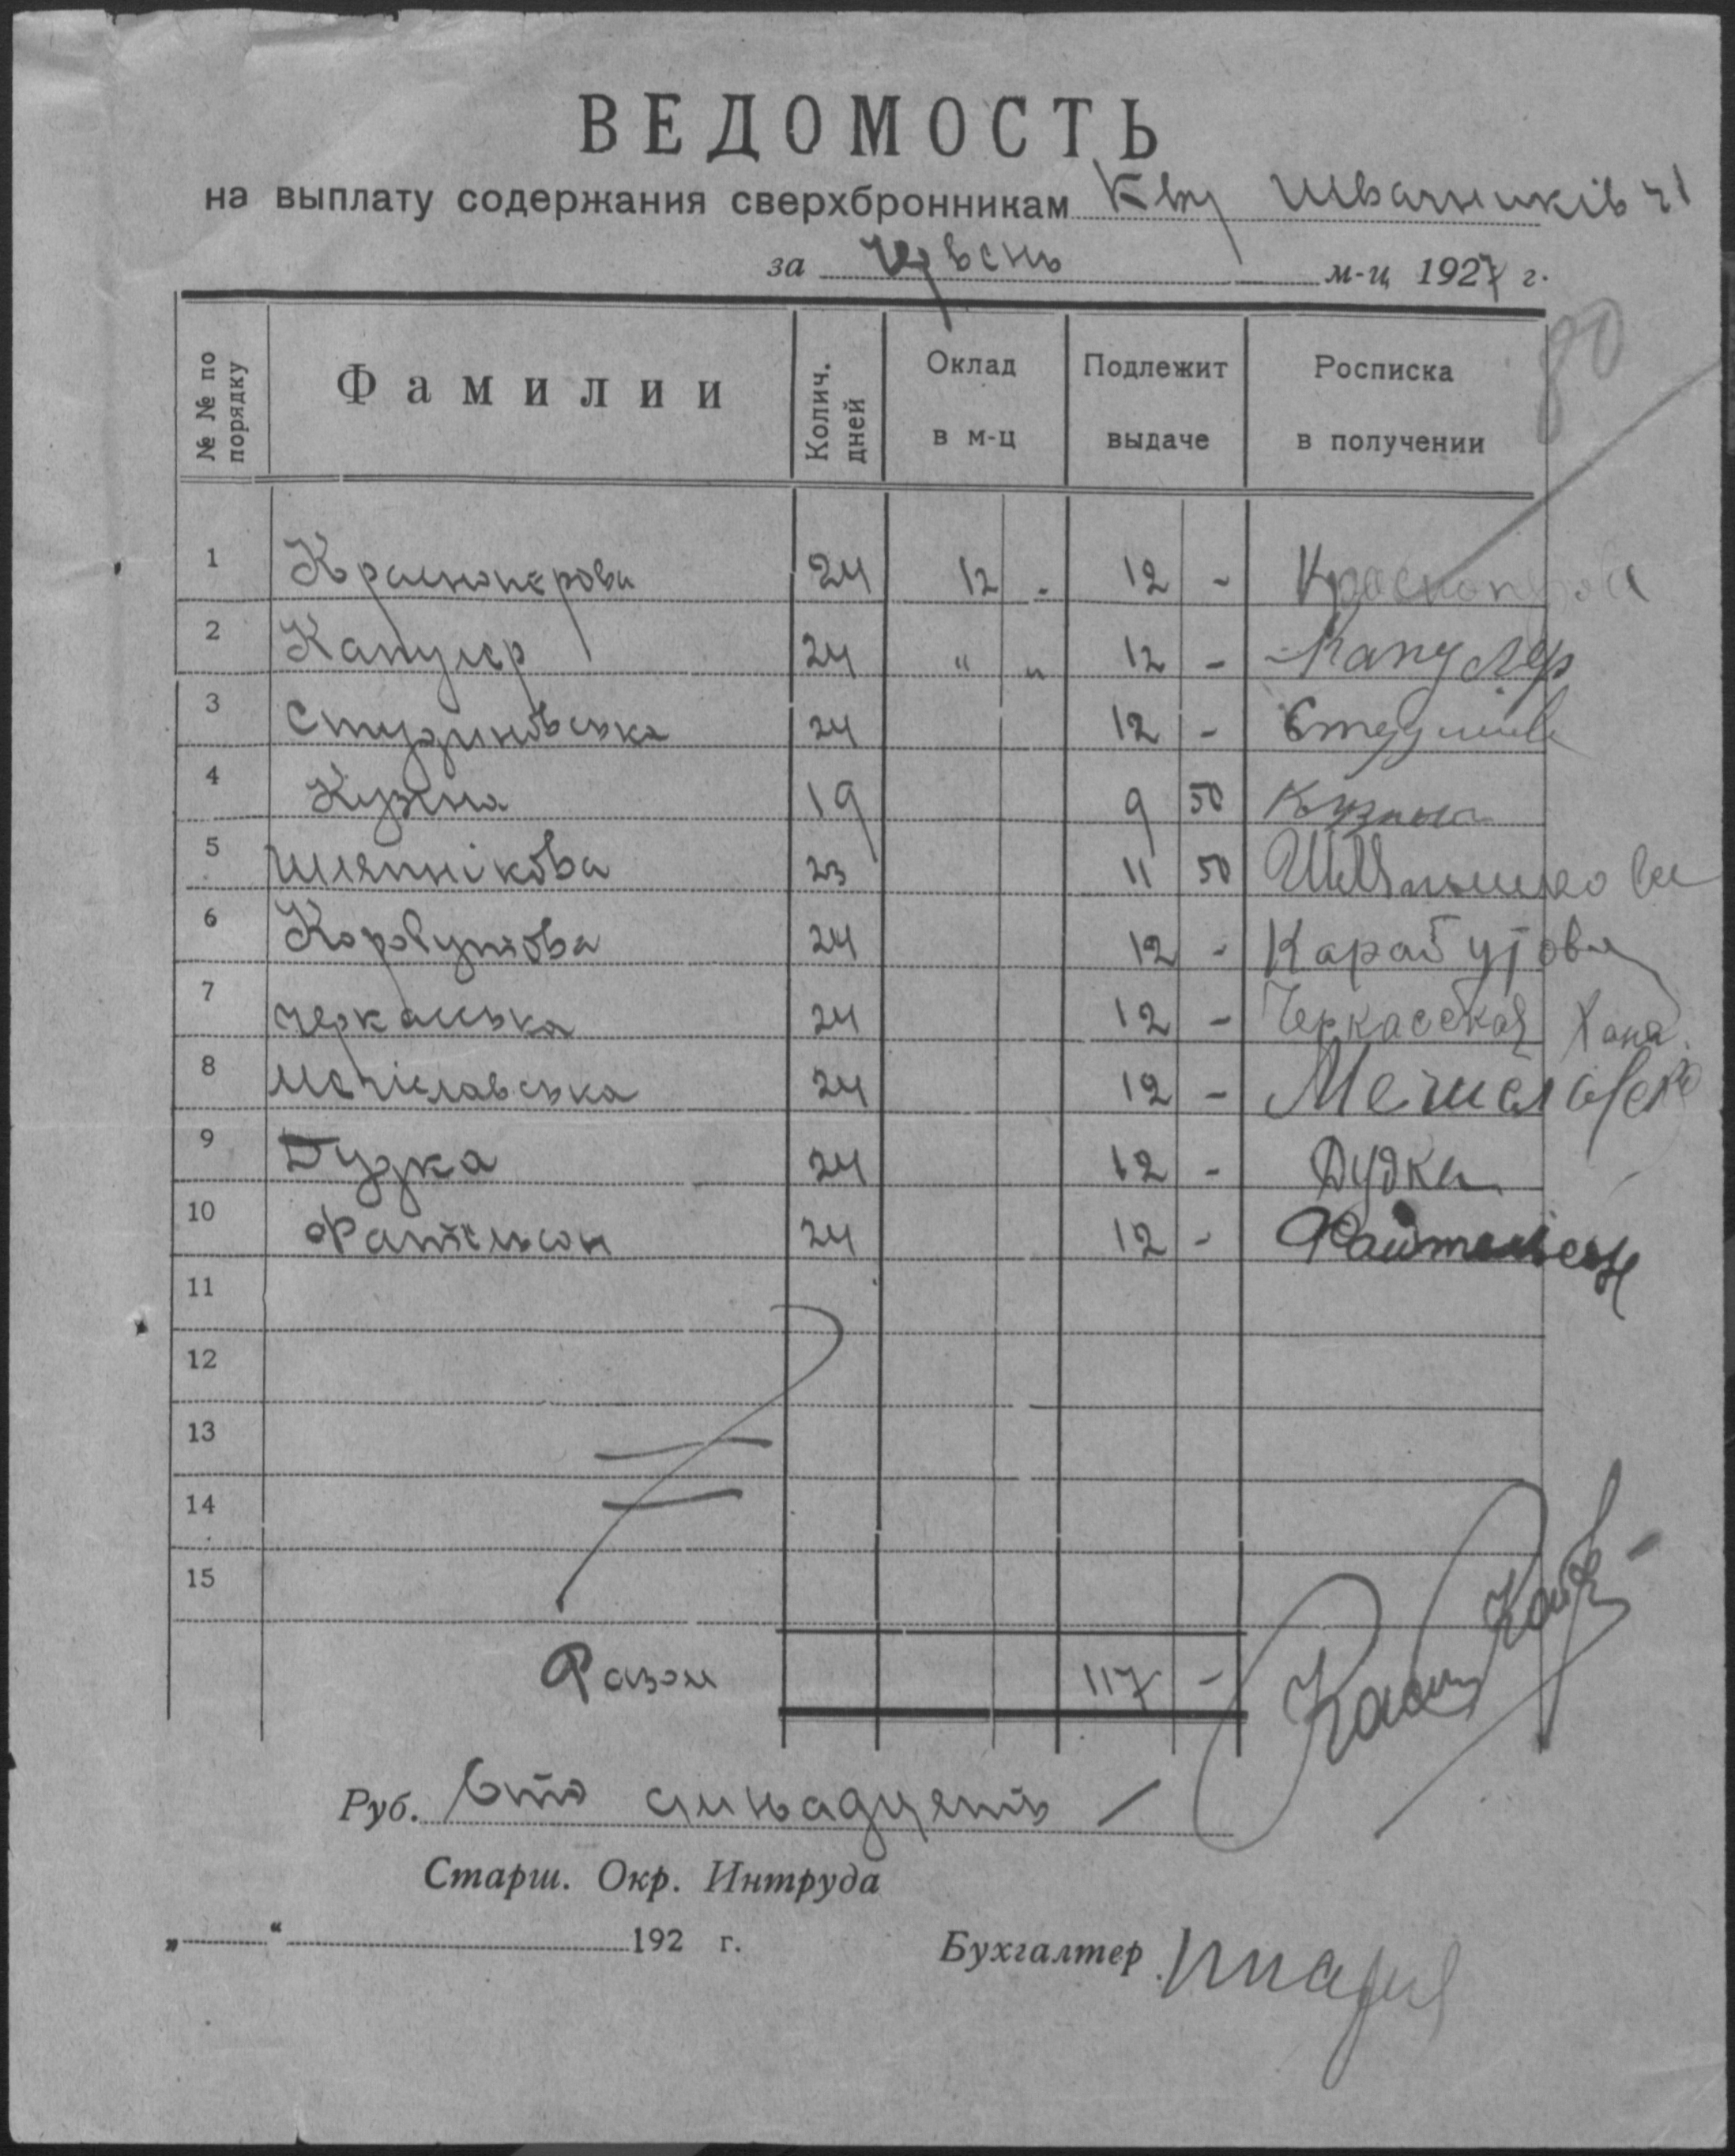 ВЕДОМОСТЬ
на выплату содержания сверхбронникам Кву Швачників ч1
за Червень м-ц 1927 г.
80
№ № по порядку Фамилии Колич. дней Оклад в м-ц Подлежит выдаче Росписка в получении
1 Красноперова 24 12 - 12 - Красноперова
2 Капулер 24 " " 12 - Капулер
3 Студзиновська 24 12 -
4 Кузіна 19 9 50 Кузина
5 Шляпнікова 23 11 50 Шляпникова
6 Коробутова 24 12 - Карабутова
7 Черкаська 24 12 - Черкасская Хана
8 Мечіславська 24 12 - Мечиславско
9 Дудка 24 12 - Дудка
10 Фантельсон 24 12 -
11
12
13
14
15
Разом 117 -
Руб. Сто сімнадцять
Старш. Окр. Интруда
„ “ 192 г. Бухгалтер